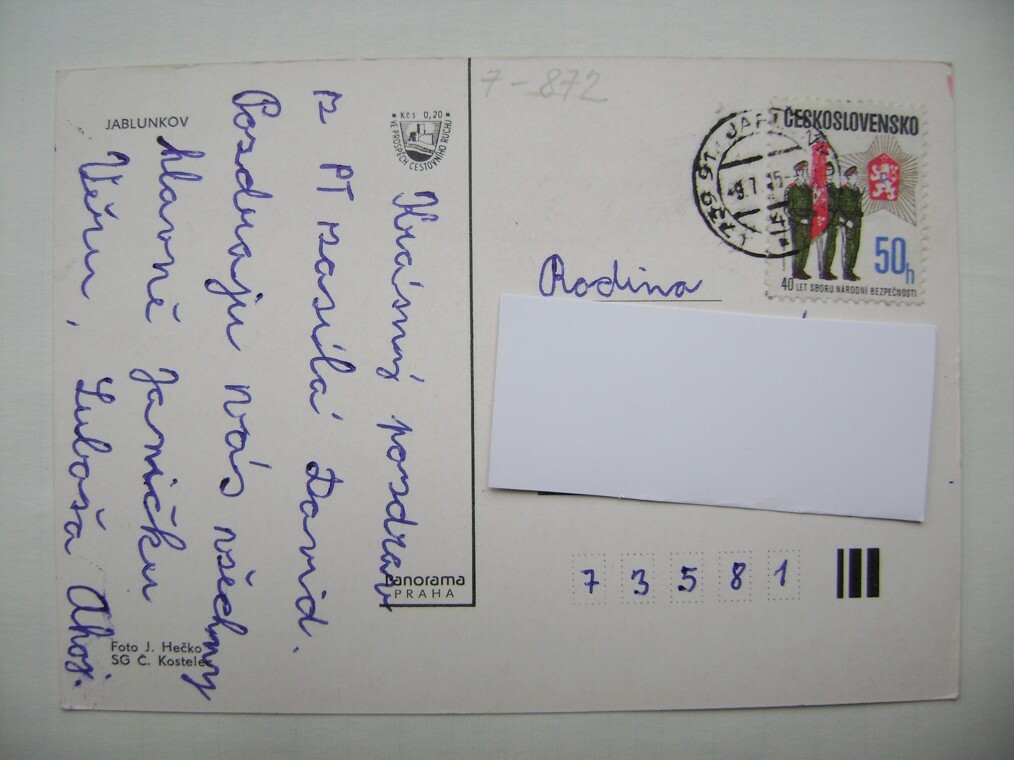 JABLUNKOV
Kčs 0,20
VE PROSPĚCH CESTOVNÍHO RUCHU
Krásný pozdrav
z PT zasílá David.
Pozdravuju vás všechny
hlavně Janičku
Věru, Luboša Ahoj.
Panorama
PRAHA
Foto J. Hečko
SG Č. Kostelec
7-872
ČESKOSLOVENSKO
50h
40 LET SBORU NÁRODNÍ BEZPEČNOSTI
739 91
Rodina
7 3 5 8 1